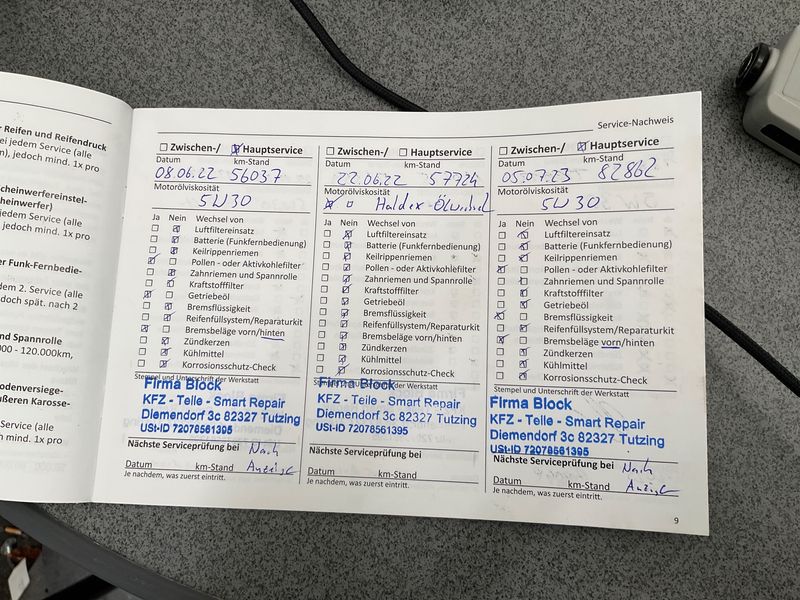 r Reifen und Reifendruck
ei jedem Service (alle
n), jedoch mind. 1x pro
cheinwerfereinstel-
heinwerfer)
jedem Service (alle
, jedoch mind. 1x pro
r Funk-Fernbedie-
dem 2. Service (alle
doch spät. nach 2
nd Spannrolle
000 - 120.000km,
odenversiege-
ußeren Karosse-
Service (alle
h mind. 1x pro
Service-Nachweis
Zwischen-/ Hauptservice
Datum km-Stand
08.06.22 56037
Motorölviskosität
5W30
Ja Nein Wechsel von
Luftfiltereinsatz
Batterie (Funkfernbedienung)
Keilrippenriemen
Pollen - oder Aktivkohlefilter
Zahnriemen und Spannrolle
Kraftstofffilter
Getriebeöl
Bremsflüssigkeit
Reifenfüllsystem/Reparaturkit
Bremsbeläge vorn/hinten
Zündkerzen
Kühlmittel
Korrosionsschutz-Check
Stempel und Unterschrift der Werkstatt
Firma Block
KFZ - Teile - Smart Repair
Diemendorf 3c 82327 Tutzing
USt-ID 72078561395
Nächste Serviceprüfung bei Nach
Datum km-Stand Anzeige
Je nachdem, was zuerst eintritt.
Zwischen-/ Hauptservice
Datum km-Stand
22.06.22 57724
Motorölviskosität
Haldex-Ölwechsel
Ja Nein Wechsel von
Luftfiltereinsatz
Batterie (Funkfernbedienung)
Keilrippenriemen
Pollen - oder Aktivkohlefilter
Zahnriemen und Spannrolle
Kraftstofffilter
Getriebeöl
Bremsflüssigkeit
Reifenfüllsystem/Reparaturkit
Bremsbeläge vorn/hinten
Zündkerzen
Kühlmittel
Korrosionsschutz-Check
Stempel und Unterschrift der Werkstatt
Firma Block
KFZ - Teile - Smart Repair
Diemendorf 3c 82327 Tutzing
USt-ID 72078561395
Nächste Serviceprüfung bei
Datum km-Stand
Je nachdem, was zuerst eintritt.
Zwischen-/ Hauptservice
Datum km-Stand
05.07.23 82862
Motorölviskosität
5W30
Ja Nein Wechsel von
Luftfiltereinsatz
Batterie (Funkfernbedienung)
Keilrippenriemen
Pollen - oder Aktivkohlefilter
Zahnriemen und Spannrolle
Kraftstofffilter
Getriebeöl
Bremsflüssigkeit
Reifenfüllsystem/Reparaturkit
Bremsbeläge vorn/hinten
Zündkerzen
Kühlmittel
Korrosionsschutz-Check
Stempel und Unterschrift der Werkstatt
Firma Block
KFZ - Teile - Smart Repair
Diemendorf 3c 82327 Tutzing
USt-ID 72078561395
Nächste Serviceprüfung bei Nach
Datum km-Stand Anzeige
Je nachdem, was zuerst eintritt.
9